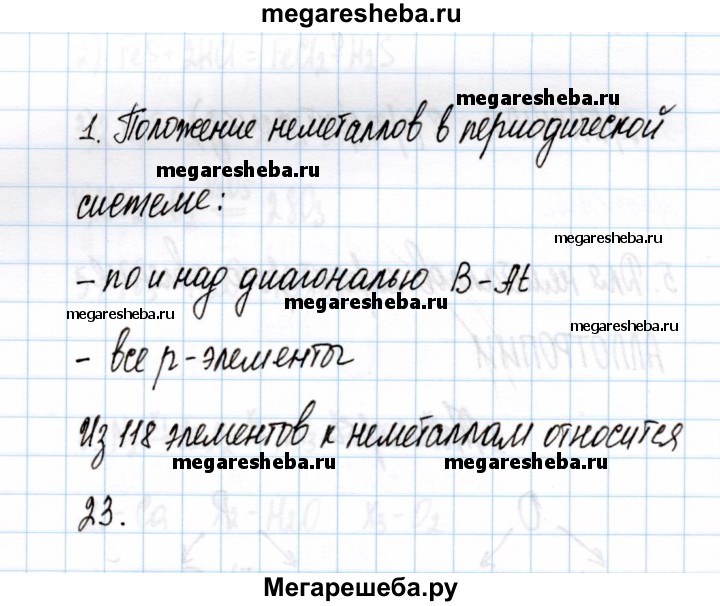 megaresheba.ru
megaresheba.ru
1. Положение неметаллов в периодической
megaresheba.ru
системе:
megaresheba.ru
- по и над диагональю B-At
megaresheba.ru
megaresheba.ru
megaresheba.ru
- все p-элементы
Из 118 элементов к неметаллам относится
megaresheba.ru megaresheba.ru
23.
Мегарешеба.ру